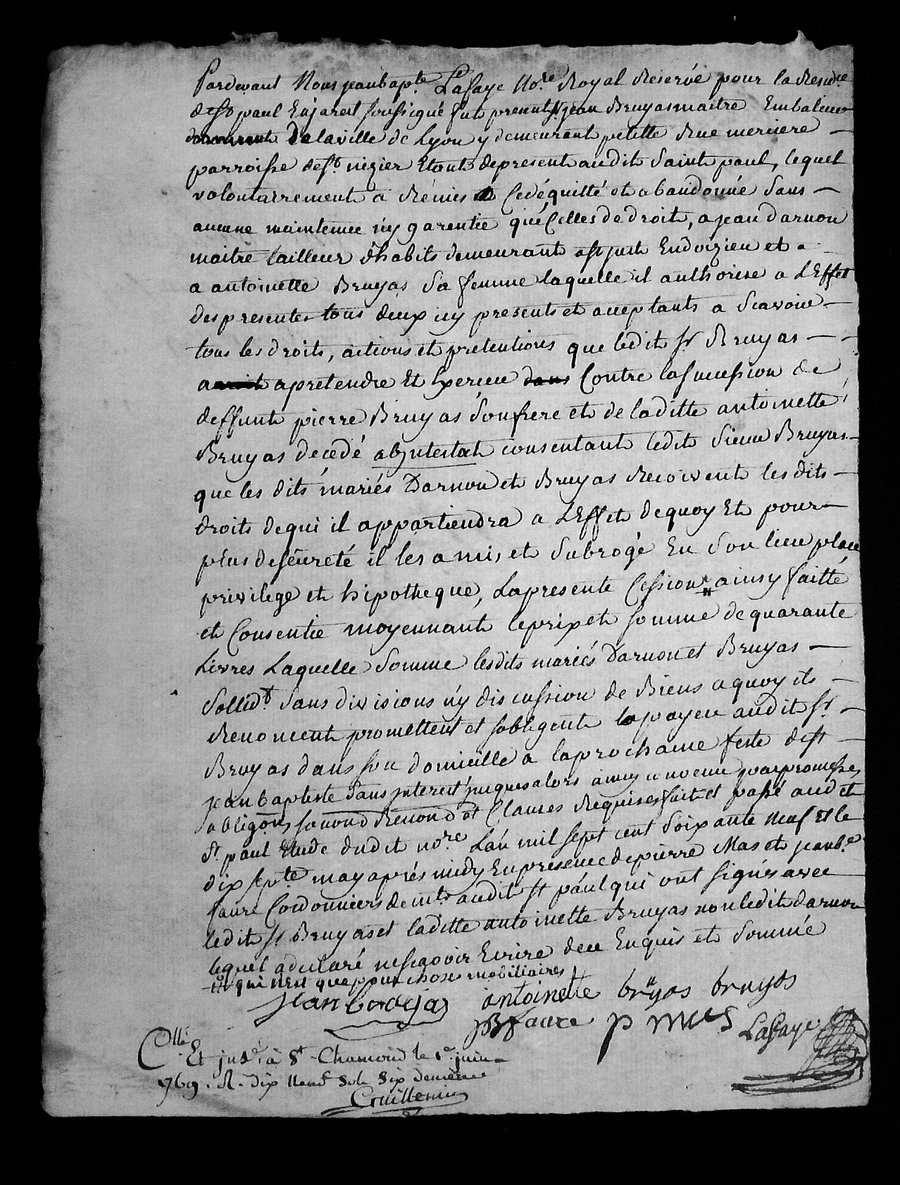 Pardevant Nous jean bapte. Lafaye Nore. Royal Reservé pour la Residce.
de st. paul En jarest soussigné fut present Sr. jean Bruyas maitre Embaleur
de la ville de Lyon y demeurant petitte Rue merciere
parroisse de st. nizier Etant de present audit Saint paul, lequel
volontairement a Rémis Cedé quitté et abandonné Sans
aucune maintenue n'y garentie que Celles de droit, a jean Darnon
maitre tailleur d'habits demeurant a st just En doizieu et a
a antoinette Bruyas Sa femme laquelle il authorise a L'Effet
des presentes tous deux icy presents et aceptants a Scavoir
tous les droits, actions et pretentions que ledit Sr Bruyas
a pretendre Et Exercer Contre la sucession de
deffunt pierre Bruyas Son frere et de laditte antoinette
Bruyas decedé abjntestat consentant ledit Sieur Bruyas
que les dits mariés Darnon et Bruyas Recoivent les dits
droits de qui il appartiendra a L'Effet de quoy Et pour
plus de seureté il les a mis et Subrogé En Son lieu place
privilege et hipotheque, La presente Cession ainsy faitte
et Consentie moyennant le prix et somme de quarante
Livres Laquelle Somme lesdits mariés Darnon et Bruyas
Sollidt. Sans divisions n'y discussion de Biens a quoy ils
Renoncent promettent et sobligent la payer audit Sr.
Bruyas dans son domicille a la prochaine feste de st
jean baptiste Sans interest jusques alors ainsy convenu par promesses
obligons. Renond. et Clauses Requises fait et passé audit
St. paul Etude dudit nore. L'an mil sept cent Soixante Neuf Et le
dix septe. may aprés midy En presence de pierre Mas et jean be.
faure Cordonniers de mts. audit St paul qui ont signés avec
ledit Sr Bruyas et laditte antoinette Bruyas non ledit darnon
lequel a declaré ne scavoir Ecrire de ce Enquis et Sommé
qui n'est que pour choses mobiliaires
jean bruyas antoinette bruyas bruyas
JB faure p mas Lafaye
Collé. Et insé. à St. Chamond le 1er. juin
769. R. dix neuf sols six deniers